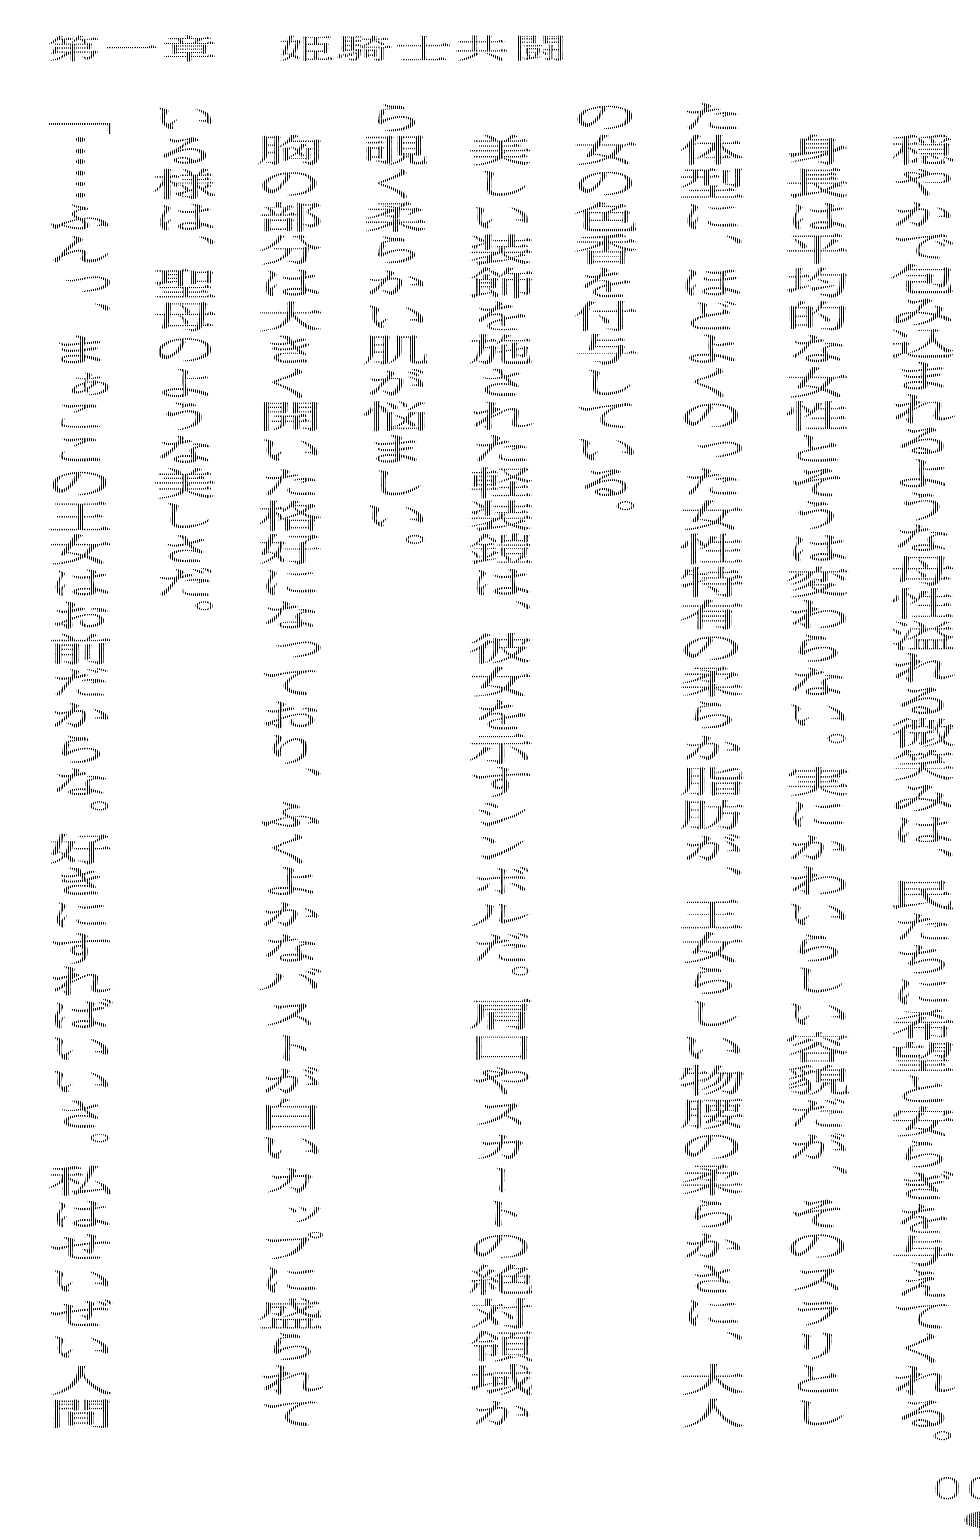 第一章　姫騎士共闘
穏やかで包み込まれるような母性溢れる微笑みは、民たちに希望と安らぎを与えてくれる。
身長は平均的な女性とそうは変わらない。実にかわいらしい容貌だが、そのスラリとし
た体型に、ほどよくのった女性特有の柔らか脂肪が、王女らしい物腰の柔らかさに、大人
の女の色香を付与している。
美しい装飾を施された軽装鎧は、彼女を示すシンボルだ。肩口やスカートの絶対領域か
ら覗く柔らかい肌が悩ましい。
胸の部分は大きく開いた格好になっており、ふくよかなバストが白いカップに盛られて
いる様は、聖母のような美しさだ。
「……ふんっ、まぁここの王女はお前だからな。好きにすればいいさ。私はせいぜい人間